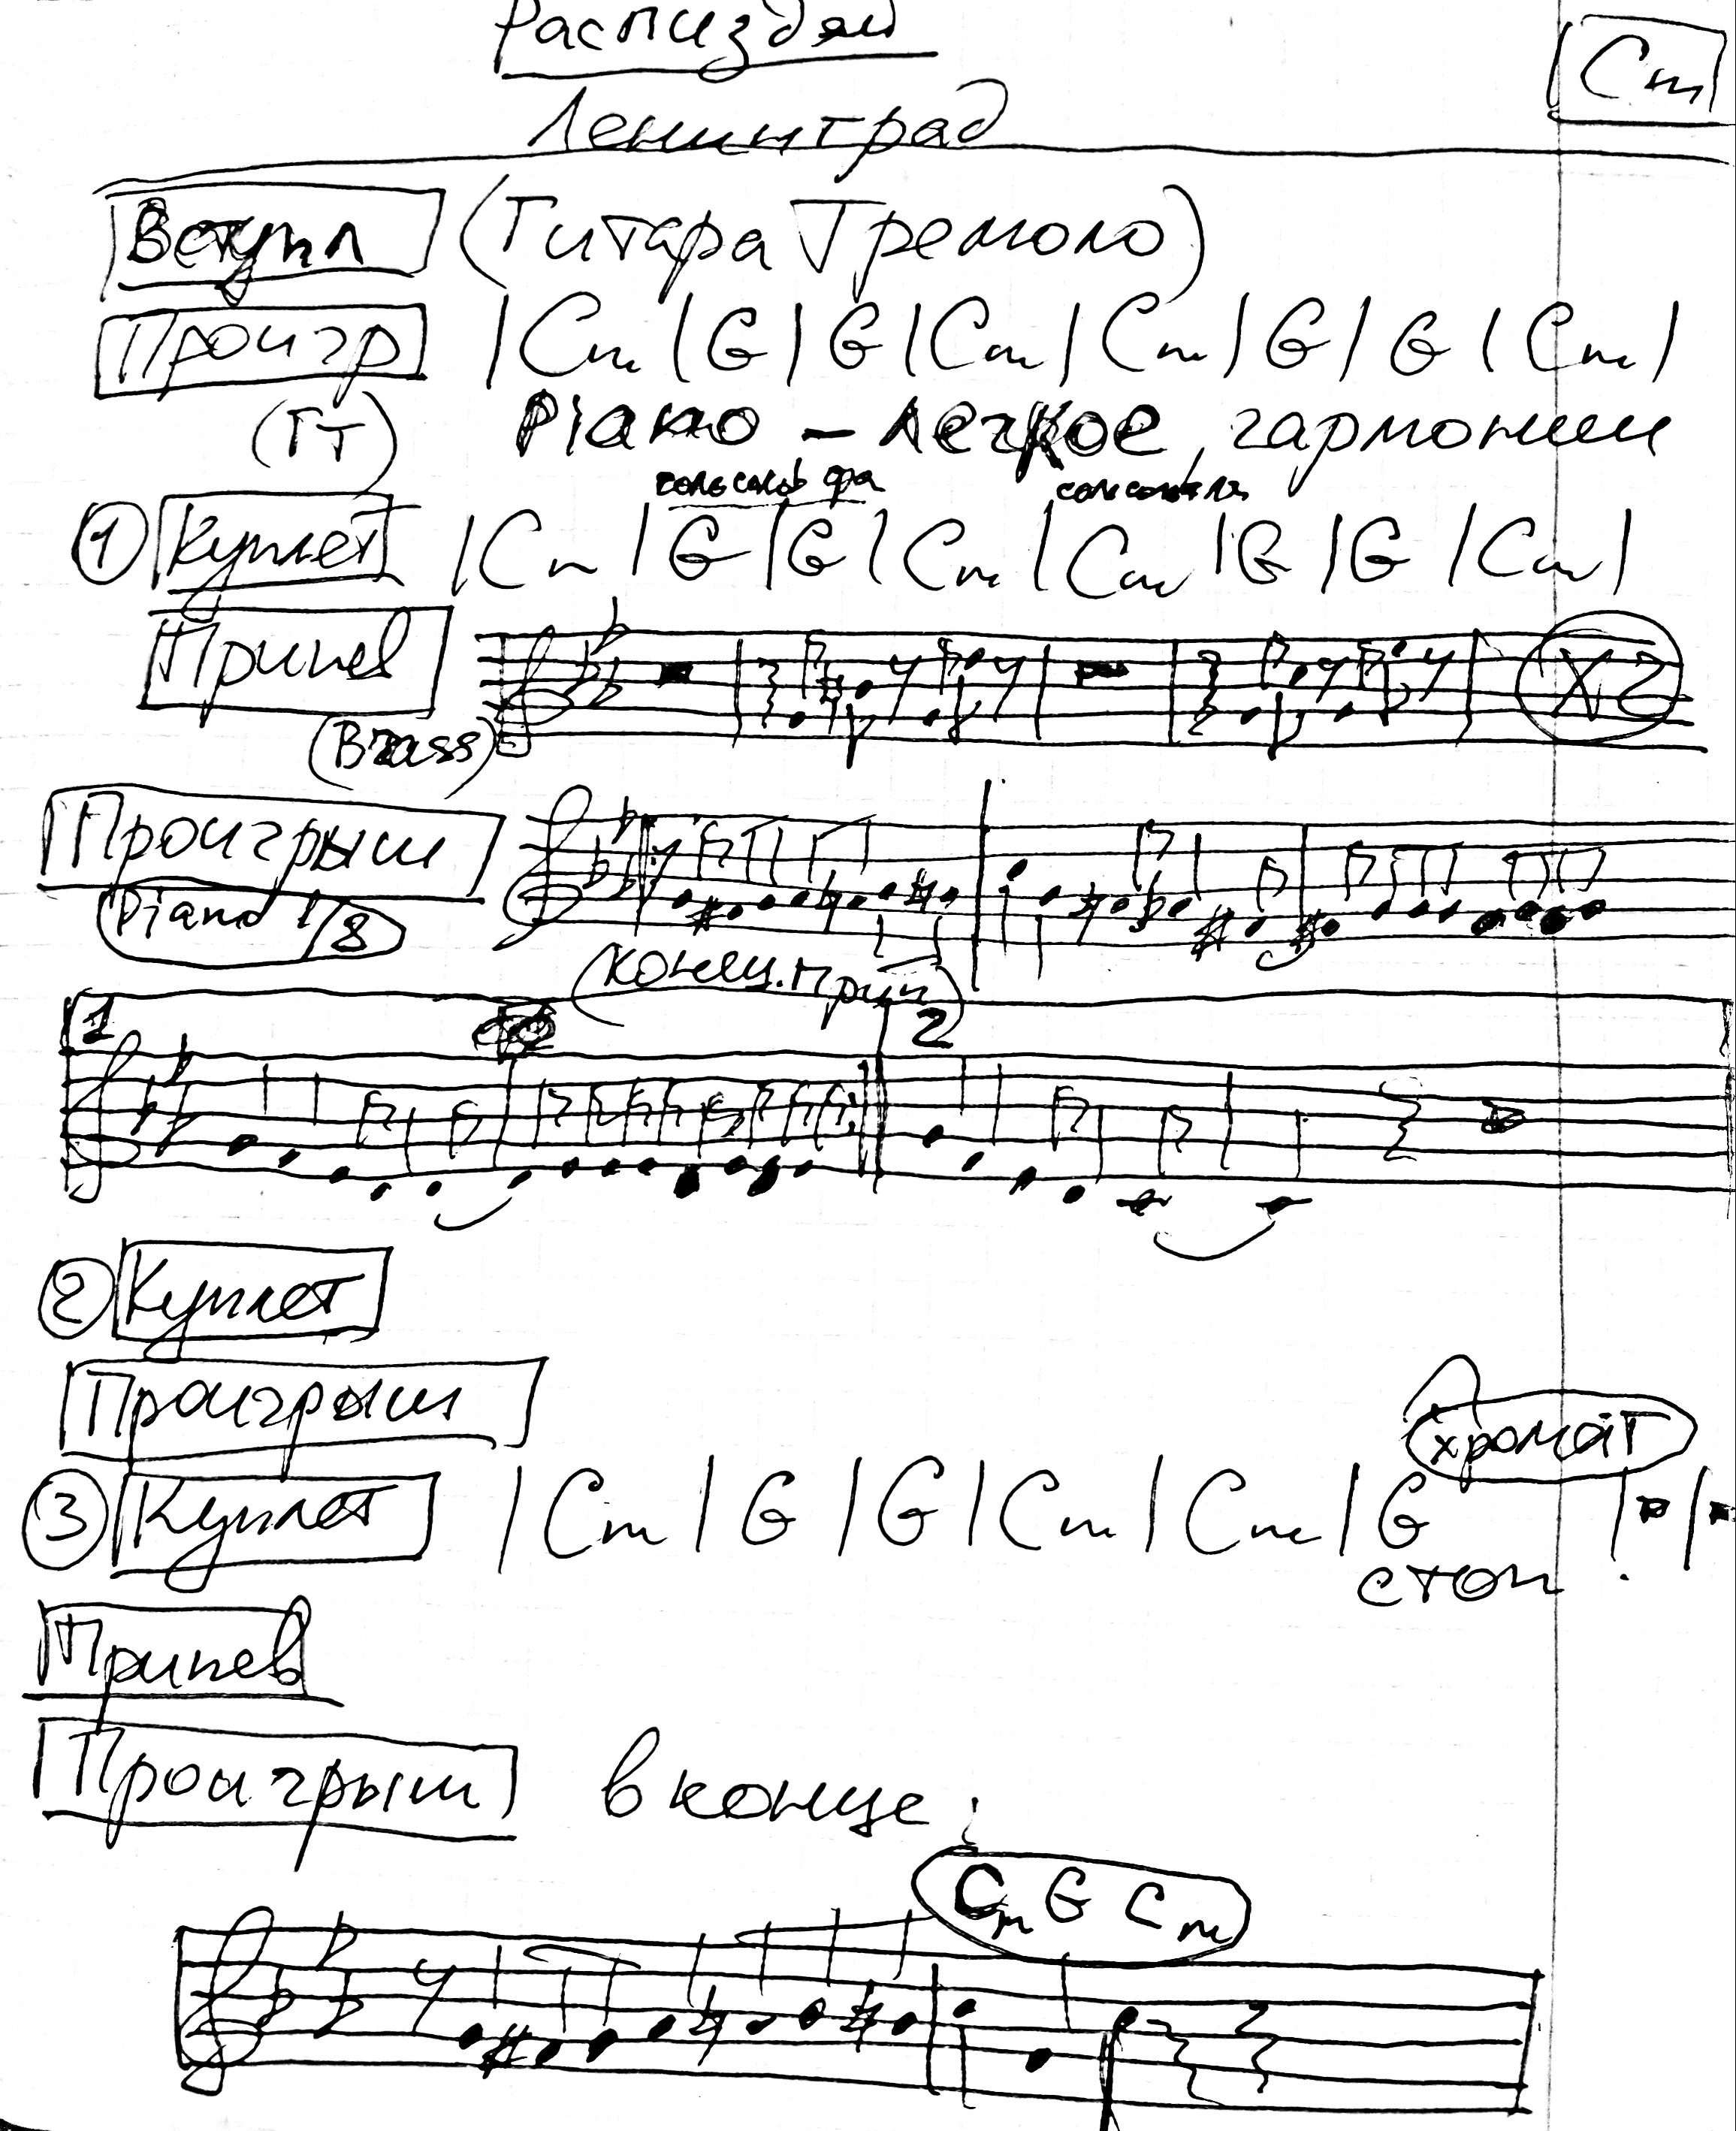 Распиздяи
Cm
Ленинград
Вступл (Гитара Тремоло)
Проигр | Cm | G | G | Cm | Cm | G | G | Cm |
(ГТ) Piano – легкое, гармонии
соль соль фа
① Куплет | Cm | G | G | Cm | Cm | G | G | Cm |
Припев X2
(Brass)
Проигрыш
Piano 1/8
(конец. прип)
1 2
② Куплет
Проигрыш
хромат
③ Куплет | Cm | G | G | Cm | Cm | G
стоп
Припев
Проигрыш в конце:
Cm G Cm